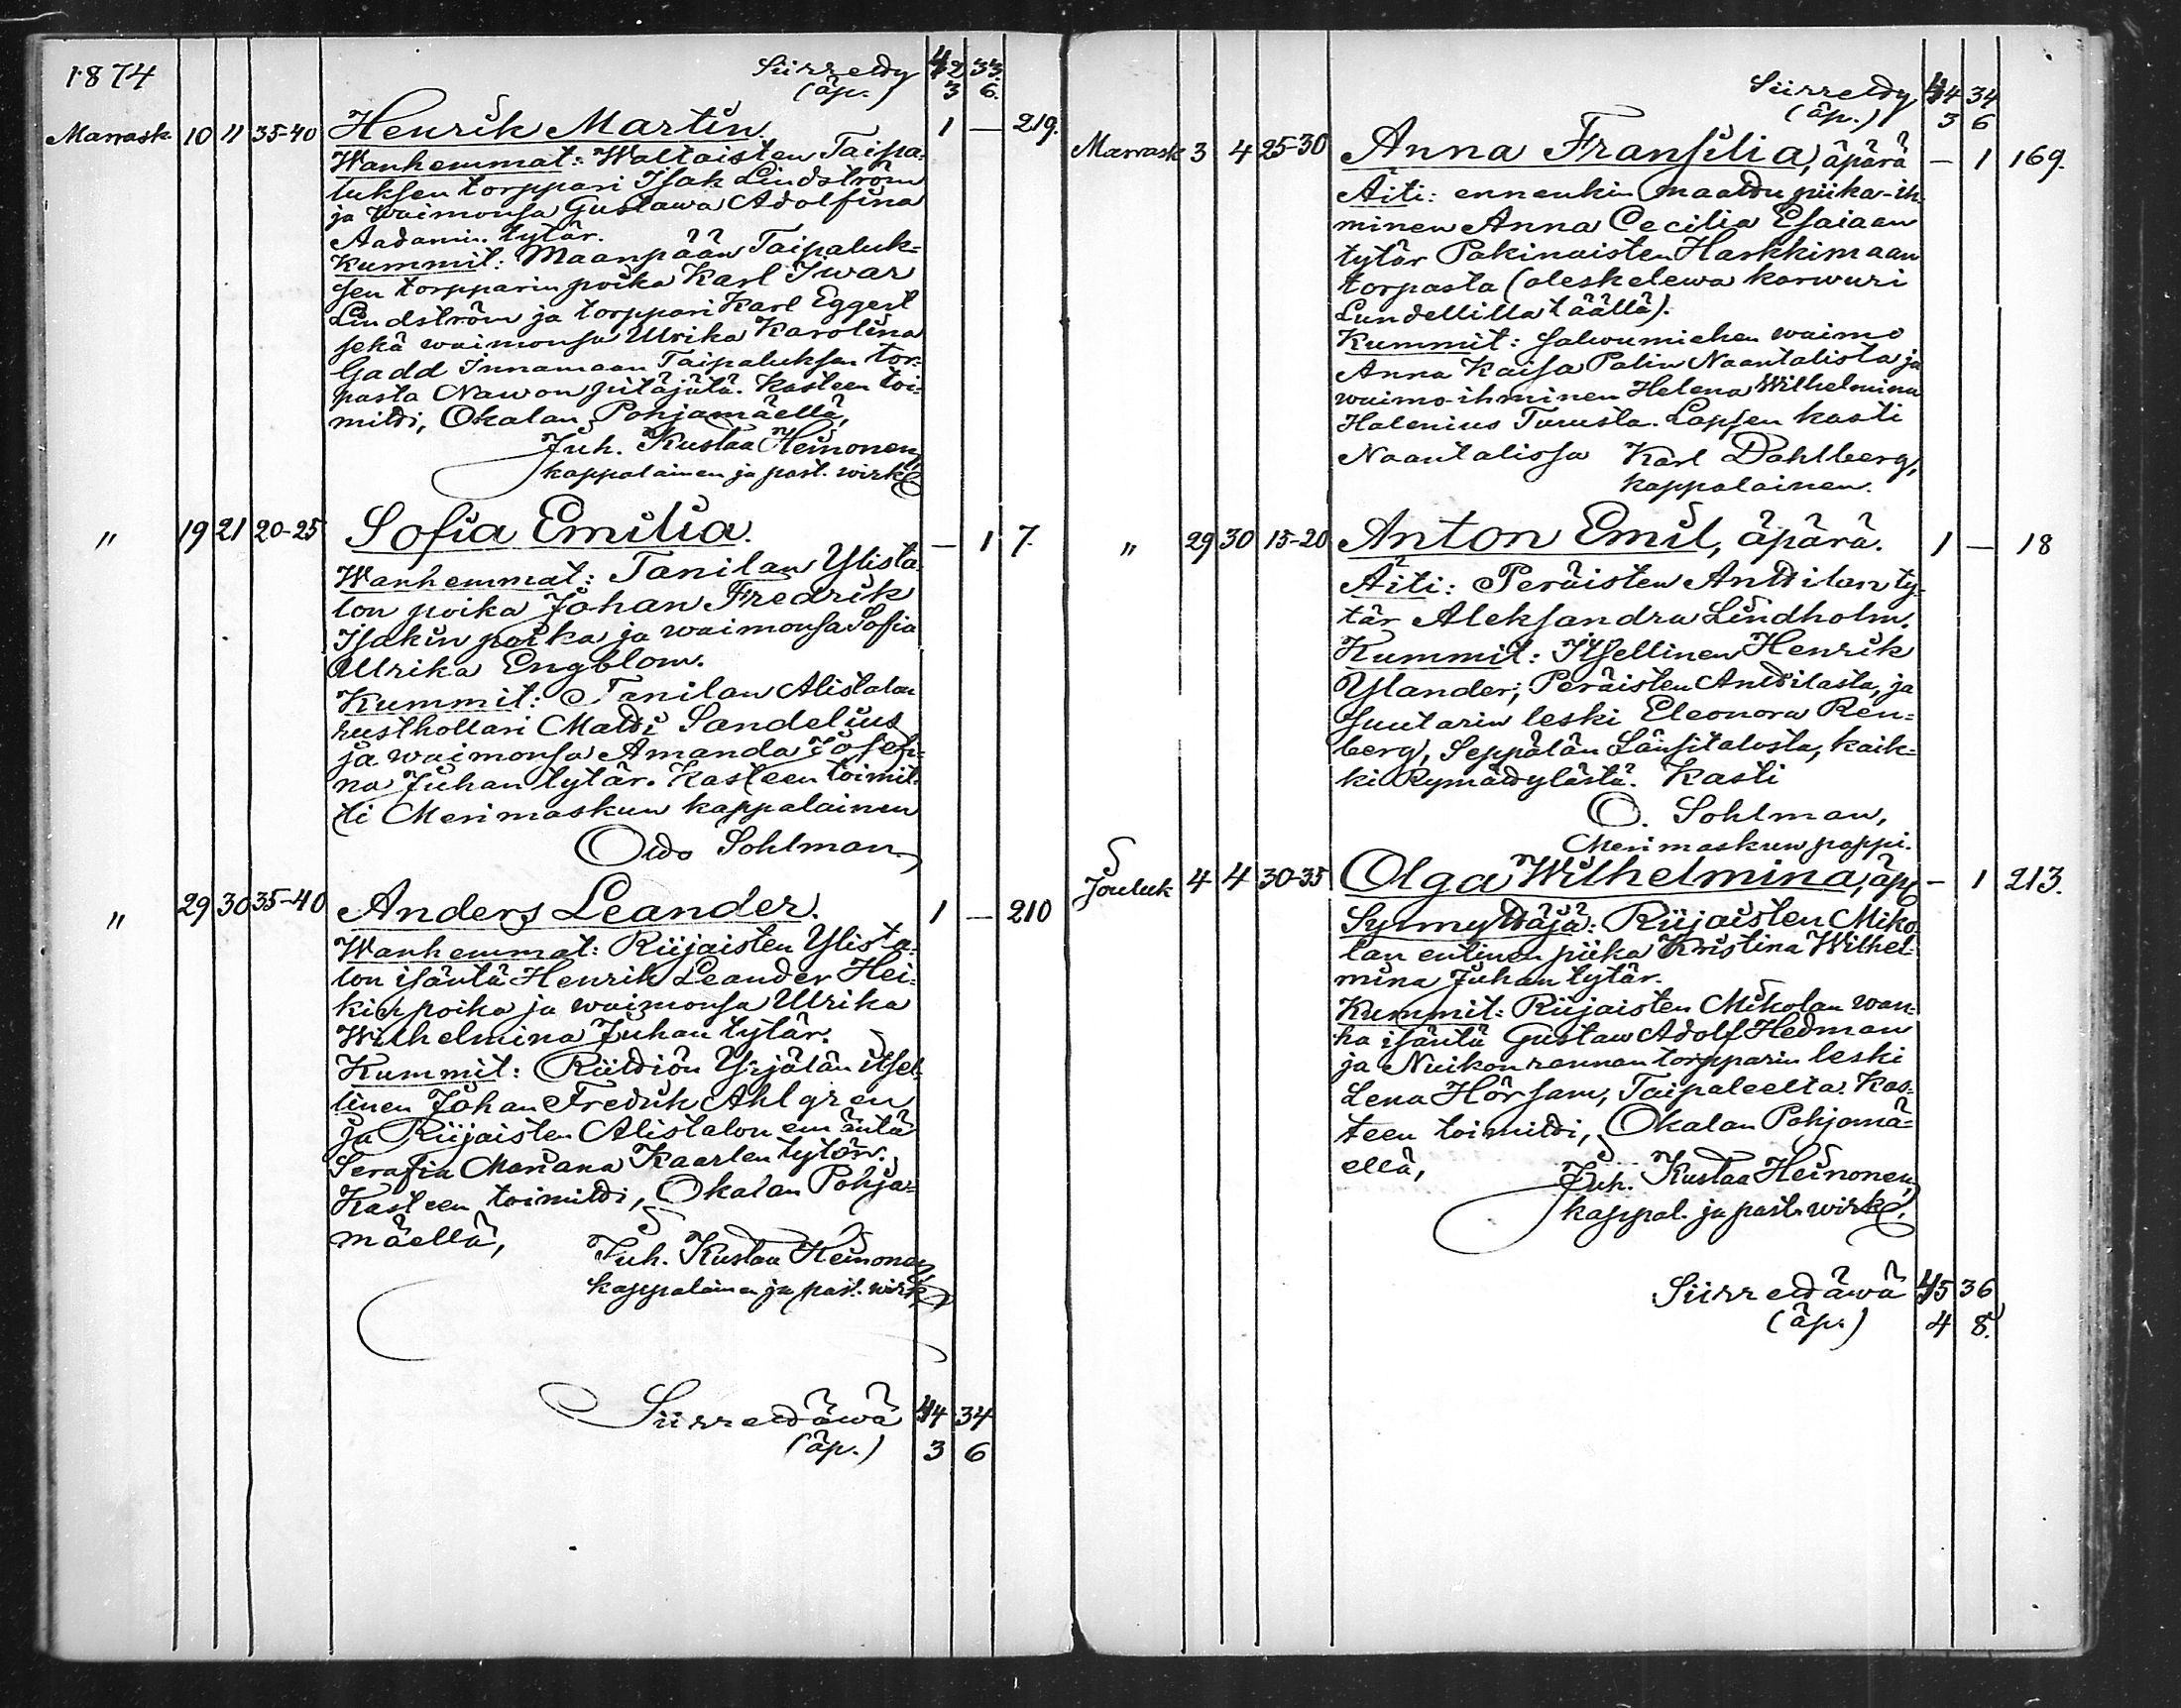 1874
Siirretty 42 33.
(äp.) 3 6.
Marrask. 10 11 35-40 Henrik Martin. 1 — 219.
Wanhemmat: Waltaisten Taipa-
luksen torppari Isak Lindström
ja waimonsa Gustawa Adolfina
Aadamin tytär.
Kummit: Maanpään Taipaluk-
sen torpparin poika Karl Iwar
Lindström ja torppari Karl Eggert
sekä waimonsa Ulrika Karolina
Gadd Innamaan Taipaluksen tor-
pasta Nawon pitäjätä. Kasteen toi-
mitti, Okalan Pohjamäellä,
Juh. Kustaa Heinonen,
kappalainen ja past. wirk.
" 19 21 20-25 Sofia Emilia. — 1 7.
Wanhemmat: Tanilan Ylista-
lon poika Johan Fredrik
Isakin poika ja waimonsa Sofia
Ulrika Engblom.
Kummit: Tanilan Alistalon
rusthollari Matti Sandelius
ja waimonsa Amanda Josefi-
na Juhan tytär. Kasteen toimit-
ti Merimaskun kappalainen
Otto Sohlman.
" 29 30 35-40 Anders Leander. 1 — 210
Wanhemmat: Riijaisten Ylista-
lon isäntä Henrik Leander Hei-
kin poika ja waimonsa Ulrika
Wilhelmina Juhan tytär.
Kummit: Riittiön Yrjälän itsel-
linen Johan Fredrik Ahlgren
ja Riijaisten Alistalon emäntä
Serafia Mariana Kaarlen tytär.
Kasteen toimitti, Okalan Pohja-
mäellä,
Juh. Kustaa Heinonen,
kappalainen ja past. wirk.
Siirrettäwä 44 34
(äp.) 3 6
Siirretty 44 34
(äp.) 3 6
Marrask 3 4 25-30 Anna Fransilia, äpärä — 1 169.
Äiti: ennenkin maattu piika-ih-
minen Anna Cecilia Esaiaan
tytär Pakinaisten Harkkimaan
torpasta (oleskelewa karwuri
Lundellilla täällä).
Kummit: Salwumiehen waimo
Anna Kaisa Palin Naantalista ja
waimo-ihminen Helena Wilhelmina
Halenius Turusta. Lapsen kasti
Naantalissa Karl Dahlberg,
kappalainen.
" 29 30 15-20 Anton Emil, äpärä. 1 — 18
Äiti: Peräisten Anttilan ty-
tär Aleksandra Lindholm.
Kummit: Itsellinen Henrik
Ylander, Peräisten Anttilasta, ja
suutarin leski Eleonora Ren-
berg, Seppälän Länsitalosta, kaik-
ki Rymättylästä. Kasti
O. Sohlman,
Merimaskun pappi.
Jouluk 4 4 30-35 Olga Wilhelmina, äp. — 1 213.
Synnyttäjä: Riijaisten Miko-
lan entinen piika Kristina Wilhel-
mina Juhan tytär.
Kummit: Riijaisten Mikolan wan-
ha isäntä Gustaw Adolf Hedman
ja Nuikonrannan torpparin leski
Lena Hörsam, Taipaleelta. Kas-
teen toimitti, Okalan Pohjamä-
ellä,
Juh. Kustaa Heinonen,
kappal. ja past. wirk.
Siirrettäwä 45 36
(äp.) 4 8.